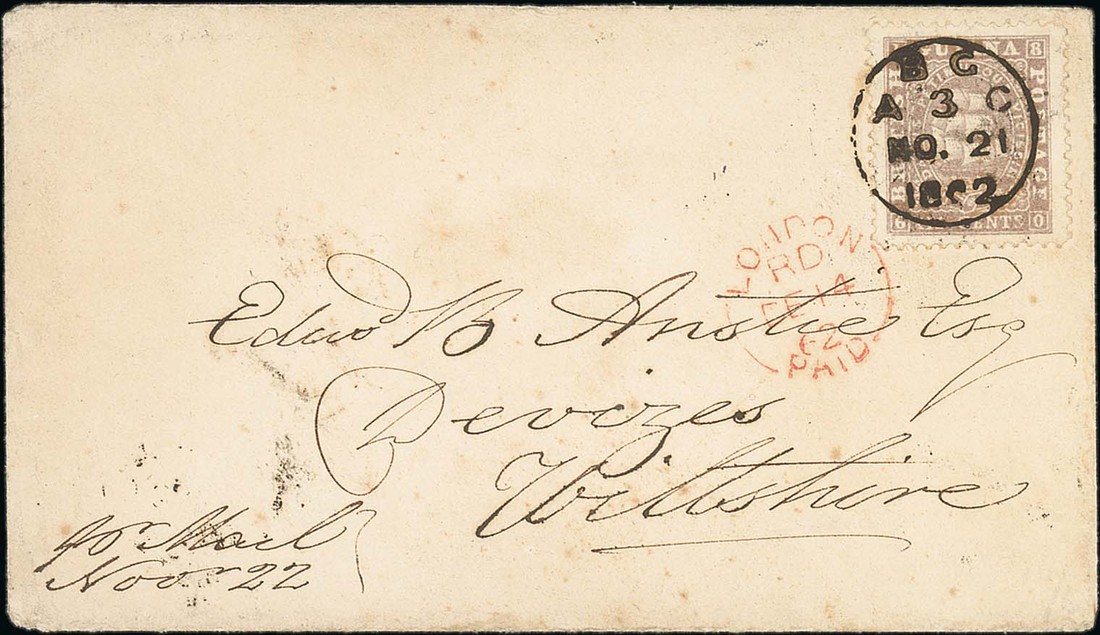 B G
A 3 C
NO. 21
1862
GUIANA
POSTAGE
CENTS
8
0
LONDON
RD
FE 14
62
PAID
Edwd B Anstie Esq
Devizes
Wiltshire
pr Mail
Novr 22